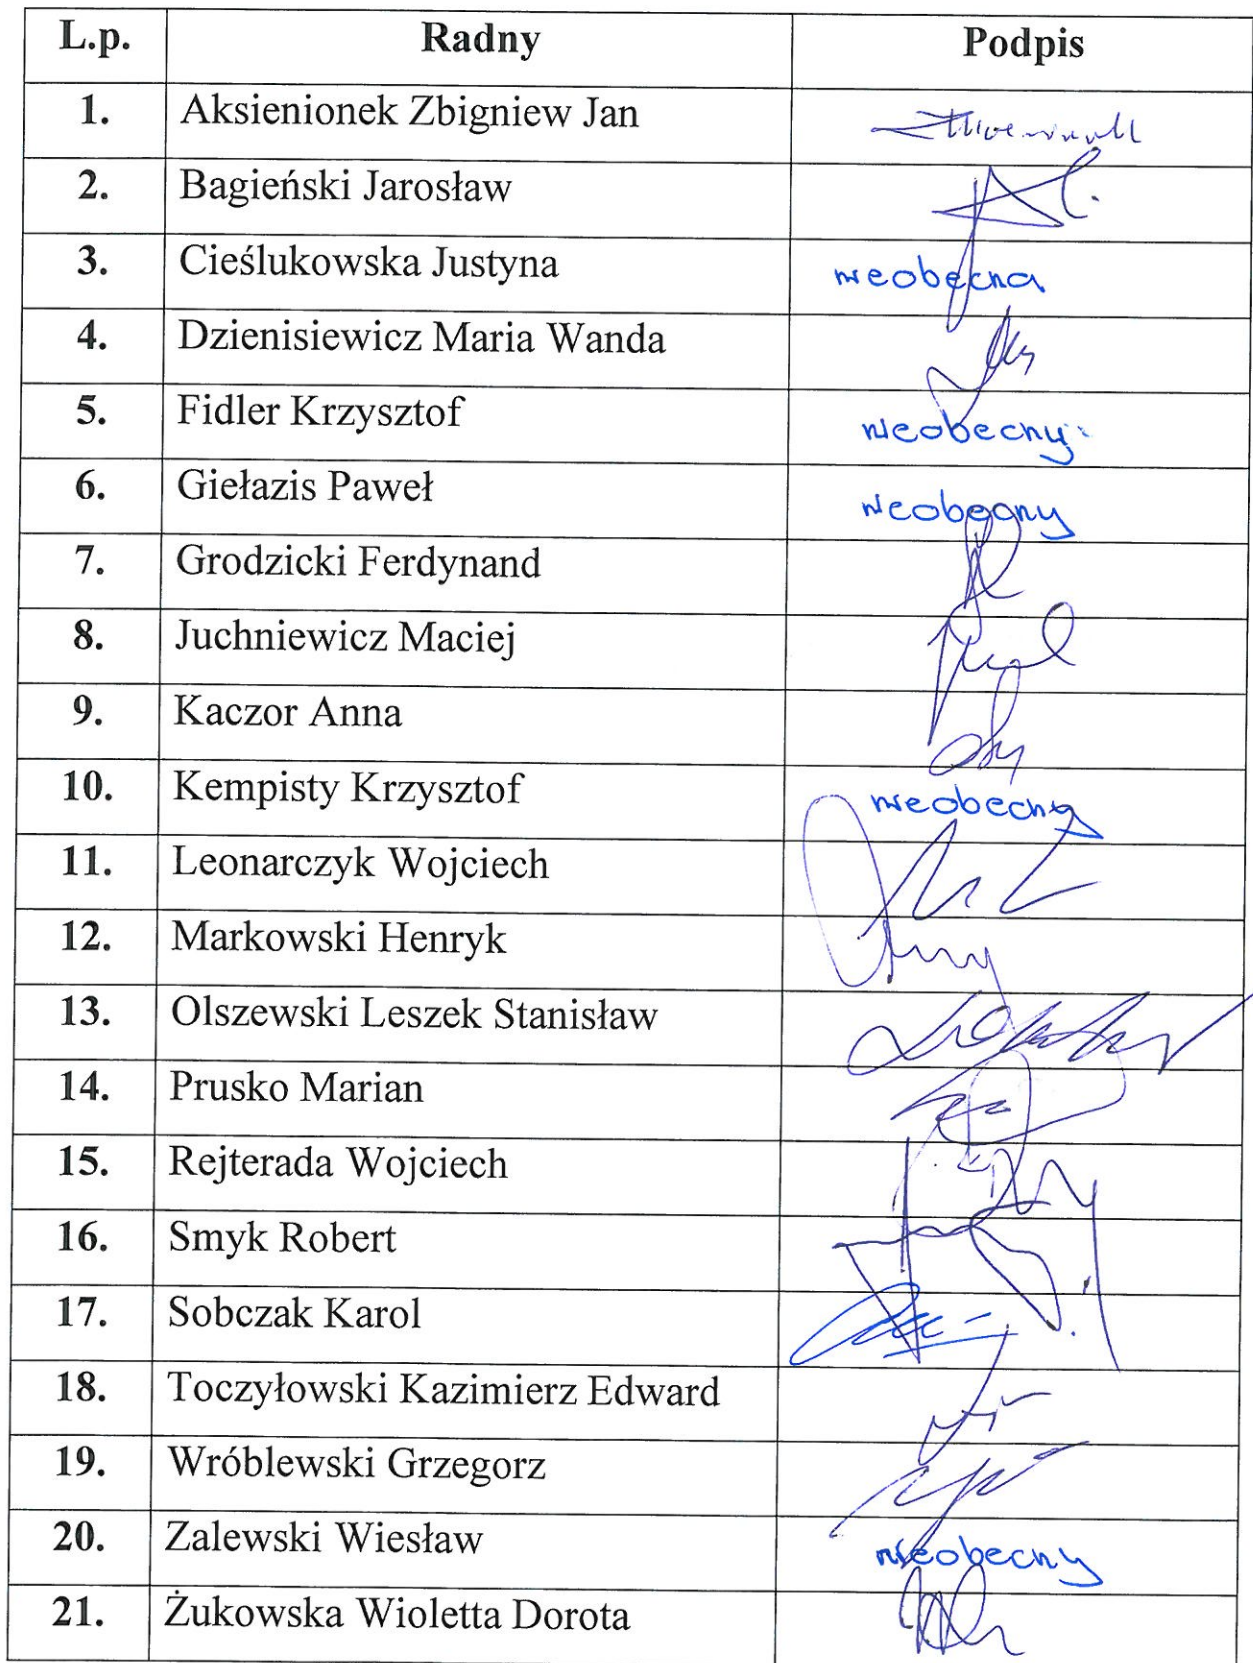 L.p. Radny Podpis
1. Aksienionek Zbigniew Jan
2. Bagieński Jarosław
3. Cieślukowska Justyna nieobecna
4. Dzienisiewicz Maria Wanda
5. Fidler Krzysztof nieobecny
6. Giełazis Paweł nieobecny
7. Grodzicki Ferdynand
8. Juchniewicz Maciej
9. Kaczor Anna
10. Kempisty Krzysztof nieobecny
11. Leonarczyk Wojciech
12. Markowski Henryk
13. Olszewski Leszek Stanisław
14. Prusko Marian
15. Rejterada Wojciech
16. Smyk Robert
17. Sobczak Karol
18. Toczyłowski Kazimierz Edward
19. Wróblewski Grzegorz
20. Zalewski Wiesław nieobecny
21. Żukowska Wioletta Dorota